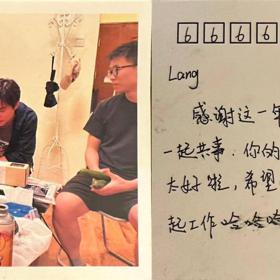 6 6 6 6
Lang
感谢这一年
一起共事. 你的
太好啦, 希望
起工作哈哈哈